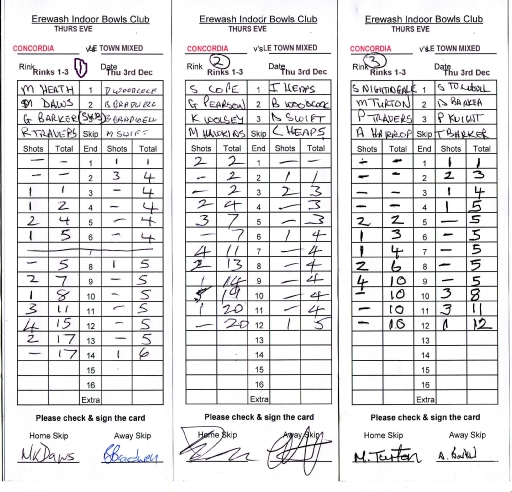 Erewash Indoor Bowls Club
THURS EVE
CONCORDIA v's I.E TOWN MIXED
Rink 1 Date
Rinks 1-3 Thu 3rd Dec
M HEATH 1
M DAWS 2 B BRADWELL
G BARKER (SUB) 3 BRADWELL
R TRAVERS Skip M SWIFT
Shots Total End Shots Total
- - 1 1 1
- - 2 3 4
1 1 3 - 4
1 2 4 - 4
2 4 5 - 4
1 5 6 - 4
7
- 5 8 1 5
2 7 9 - 5
1 8 10 - 5
3 11 11 - 5
4 15 12 - 5
2 17 13 - 5
- 17 14 1 6
15
16
Extra
Please check & sign the card
Home Skip Away Skip
MKDaws BBradwell
Erewash Indoor Bowls Club
THURS EVE
CONCORDIA v's I.E TOWN MIXED
Rink 2 Date
Rinks 1-3 Thu 3rd Dec
S COPE 1 I HEAPS
G PEARSON 2 B WOODCOCK
K WOOLSEY 3 D SWIFT
M HAWKINS Skip C HEAPS
Shots Total End Shots Total
2 2 1 - -
- 2 2 1 1
- 2 3 2 3
2 4 4 - 3
3 7 5 - 3
- 7 6 1 4
4 11 7 - 4
2 13 8 - 4
1 14 9 - 4
5 19 10 - 4
1 20 11 - 4
- 20 12 1 5
13
14
15
16
Extra
Please check & sign the card
Home Skip Away Skip
Erewash Indoor Bowls Club
THURS EVE
CONCORDIA v's I.E TOWN MIXED
Rink 3 Date
Rinks 1-3 Thu 3rd Dec
S NIGHTINGALE 1 S TURNBULL
M TURTON 2
P TRAVERS 3 P KNIGHT
A HARROP Skip T BARKER
Shots Total End Shots Total
- - 1 1 1
- - 2 2 3
- - 3 1 4
- - 4 1 5
2 2 5 - 5
1 3 6 - 5
1 4 7 - 5
2 6 8 - 5
4 10 9 - 5
- 10 10 3 8
- 10 11 3 11
- 10 12 1 12
13
14
15
16
Extra
Please check & sign the card
Home Skip Away Skip
M. Turton